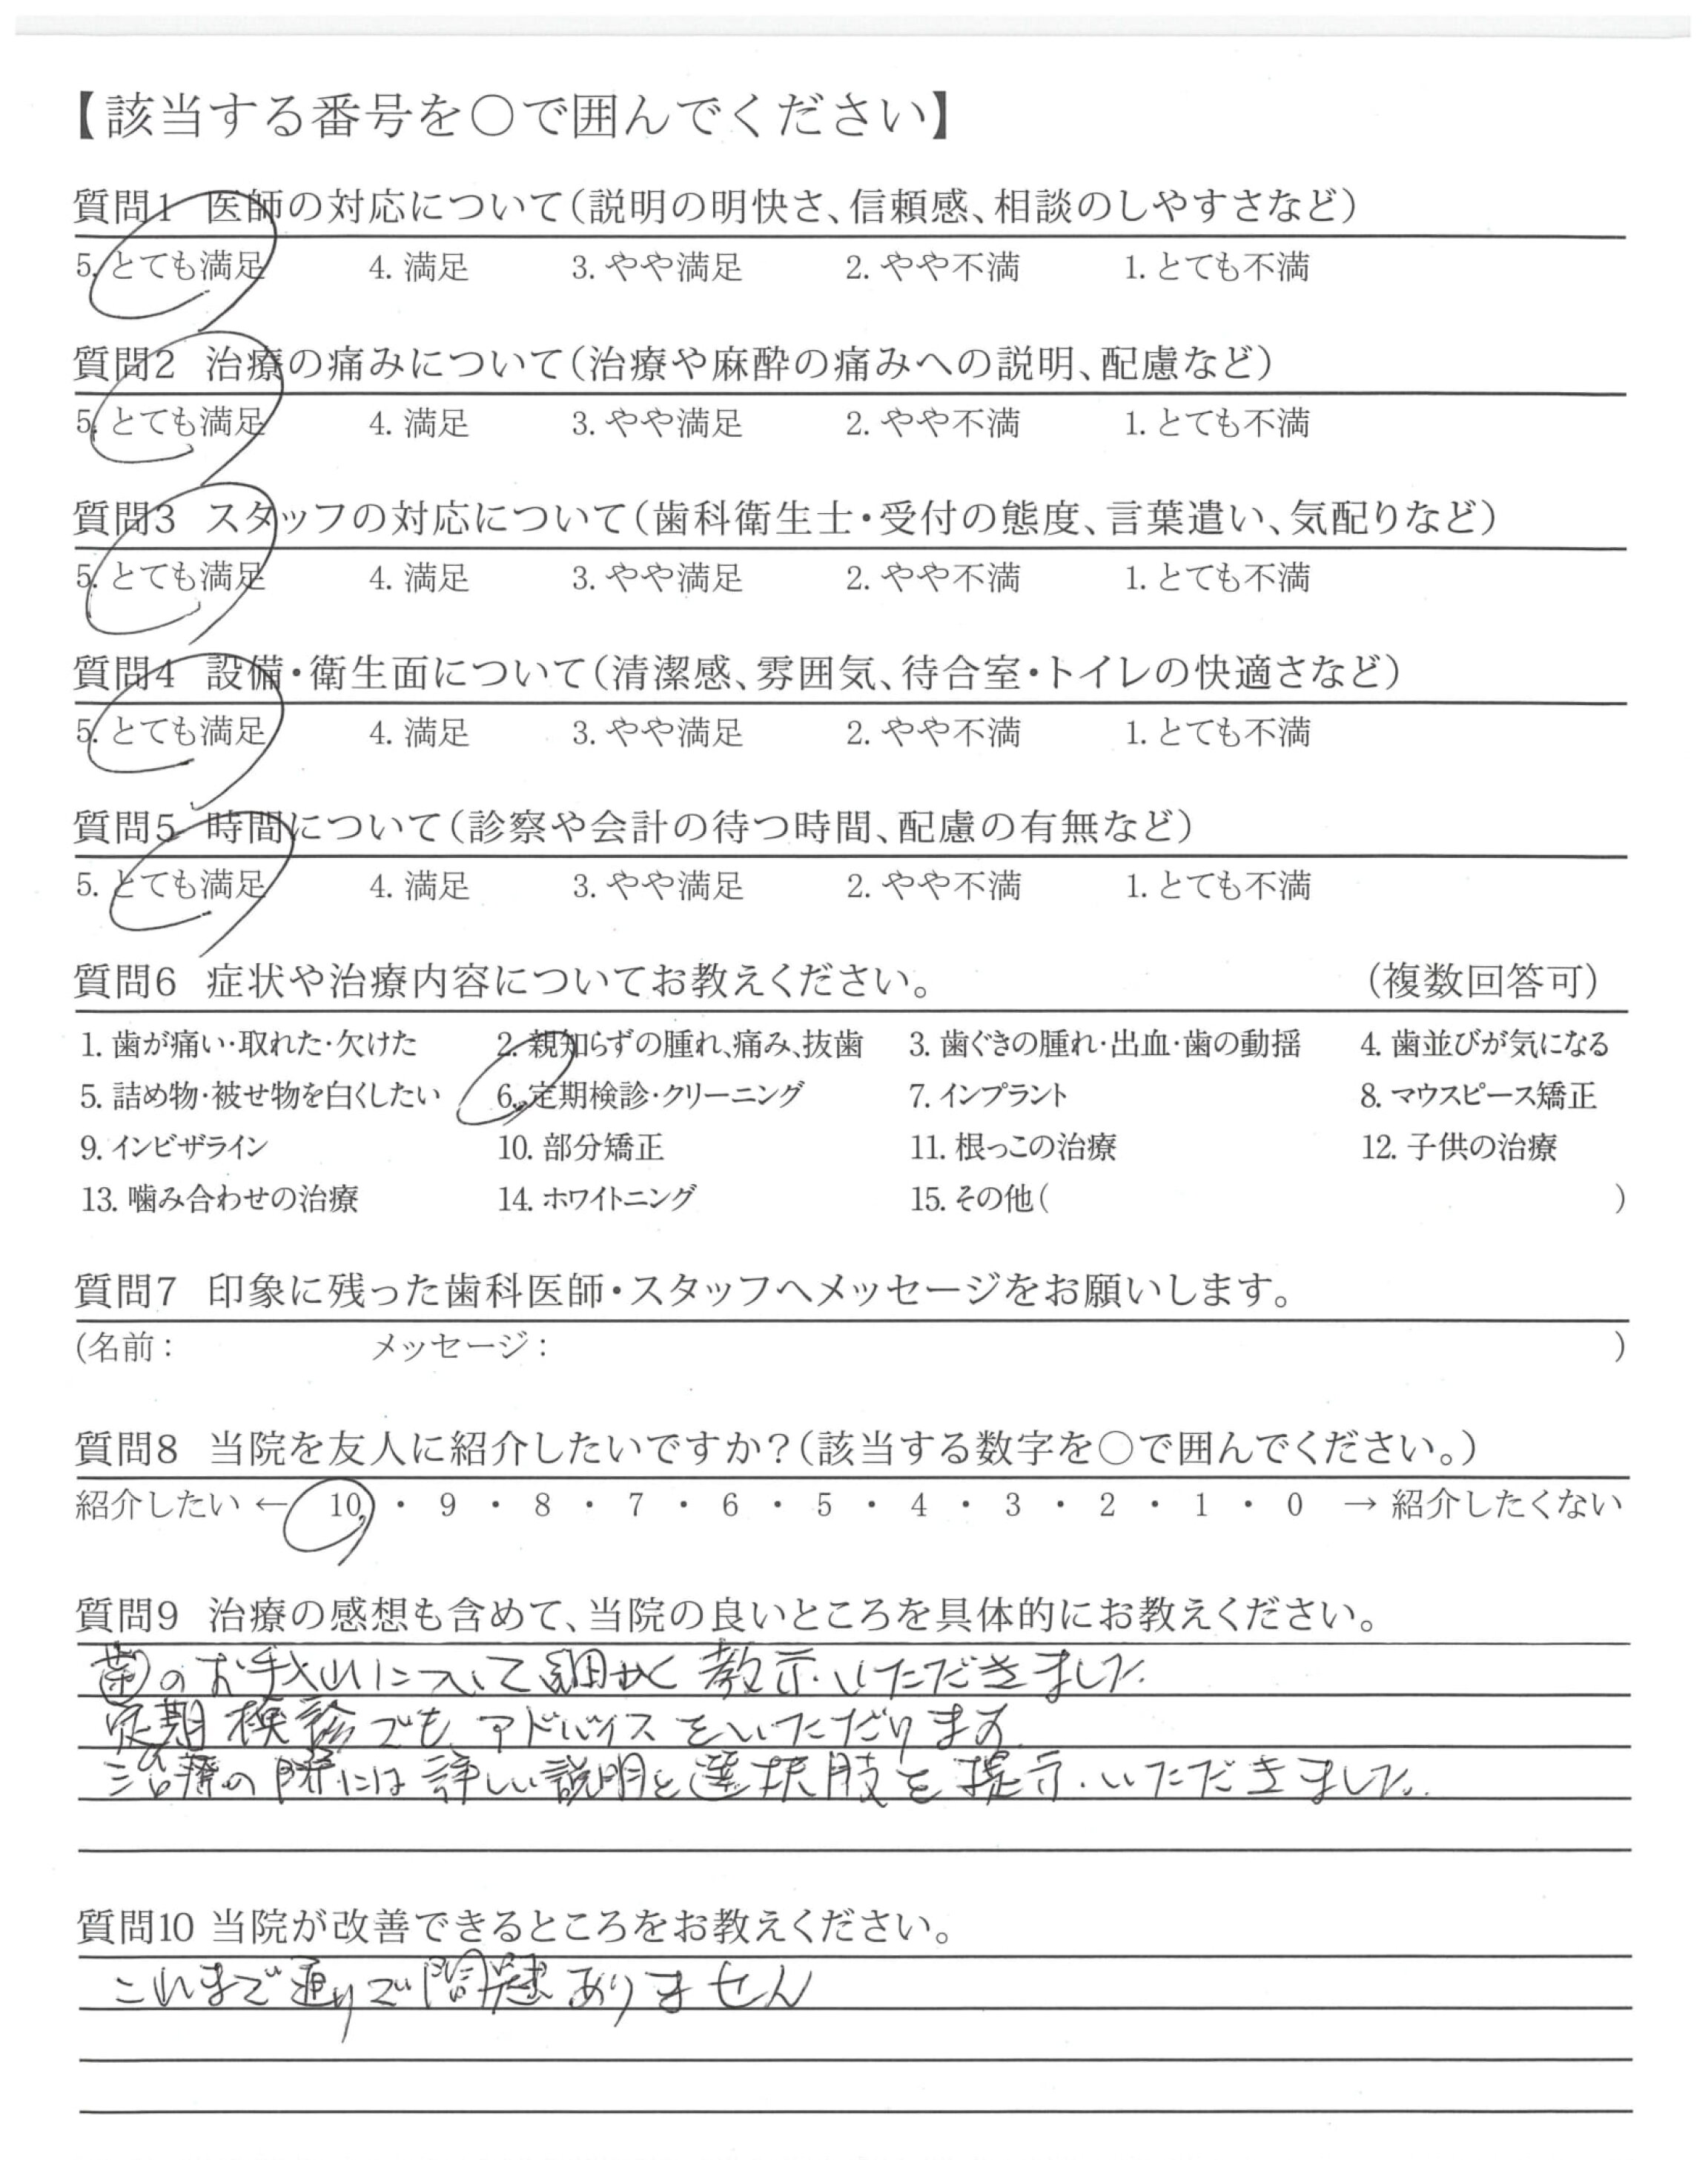 【該当する番号を○で囲んでください】
質問1 医師の対応について(説明の明快さ、信頼感、相談のしやすさなど)
5. とても満足 4. 満足 3. やや満足 2. やや不満 1. とても不満
質問2 治療の痛みについて(治療や麻酔の痛みへの説明、配慮など)
5. とても満足 4. 満足 3. やや満足 2. やや不満 1. とても不満
質問3 スタッフの対応について(歯科衛生士・受付の態度、言葉遣い、気配りなど)
5. とても満足 4. 満足 3. やや満足 2. やや不満 1. とても不満
質問4 設備・衛生面について(清潔感、雰囲気、待合室・トイレの快適さなど)
5. とても満足 4. 満足 3. やや満足 2. やや不満 1. とても不満
質問5 時間について(診察や会計の待つ時間、配慮の有無など)
5. とても満足 4. 満足 3. やや満足 2. やや不満 1. とても不満
質問6 症状や治療内容についてお教えください。 (複数回答可)
1. 歯が痛い・取れた・欠けた 2. 親知らずの腫れ、痛み、抜歯 3. 歯ぐきの腫れ・出血・歯の動揺 4. 歯並びが気になる
5. 詰め物・被せ物を白くしたい 6. 定期検診・クリーニング 7. インプラント 8. マウスピース矯正
9. インビザライン 10. 部分矯正 11. 根っこの治療 12. 子供の治療
13. 噛み合わせの治療 14. ホワイトニング 15. その他( )
質問7 印象に残った歯科医師・スタッフへメッセージをお願いします。
(名前: メッセージ: )
質問8 当院を友人に紹介したいですか?(該当する数字を○で囲んでください。)
紹介したい ← 10 ・ 9 ・ 8 ・ 7 ・ 6 ・ 5 ・ 4 ・ 3 ・ 2 ・ 1 ・ 0 → 紹介したくない
質問9 治療の感想も含めて、当院の良いところを具体的にお教えください。
歯のお手入れについて細かく教示いただきました
定期検診でもアドバイスをいただ
治療の際には詳しい説明と選択肢を提示いただきました。
質問10 当院が改善できるところをお教えください。
これまで通りで問題ありません